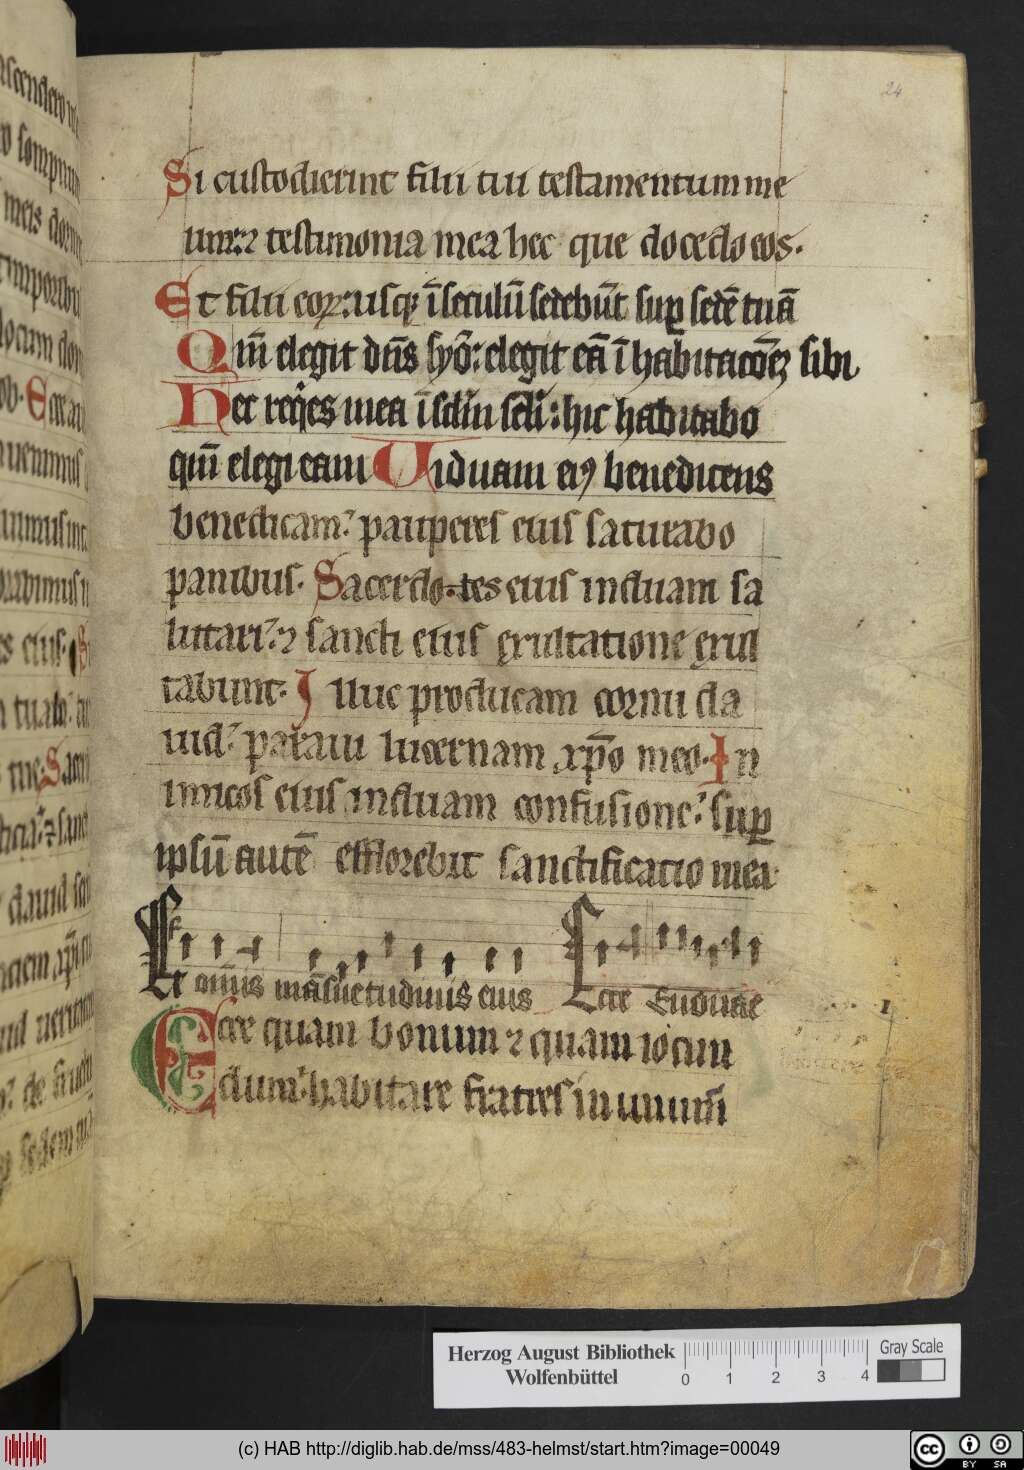 24
Si custodierint filii tui testamentum me
um: ⁊ testimonia mea hec que docebo eos.
Et filii eoꝝ: usqꝫ ī seculū sedebūt suꝑ sedē tuā
Qm̄ elegit dn̄s syō: elegit eā ī habitacōēꝫ sibi
Hec reqͥes mea ī sclm̄ scl̄i: hic habitabo
qm̄ elegi eam Uiduam eiꝰ benedicens
benedicam: pauperes eius saturabo
panibus. Sacerdo-tes eius induam sa
lutari: ⁊ sancti eius exultatione exul
tabunt. Illuc producam cornu da
uid: paraui lucernam xp̄o meo. In
imicos eius induam confusione: suꝑ
ipsū autē efflorebit sanctificatio mea.
Et om̄is māsuetudinis eius Ecce Euouae
Ecce quam bonum ⁊ quam iocun
dum: habitare fratres in unum
Herzog August Bibliothek
Wolfenbüttel
0 1 2 3 4
Gray Scale
(c) HAB http://diglib.hab.de/mss/483-helmst/start.htm?image=00049
cc BY SA